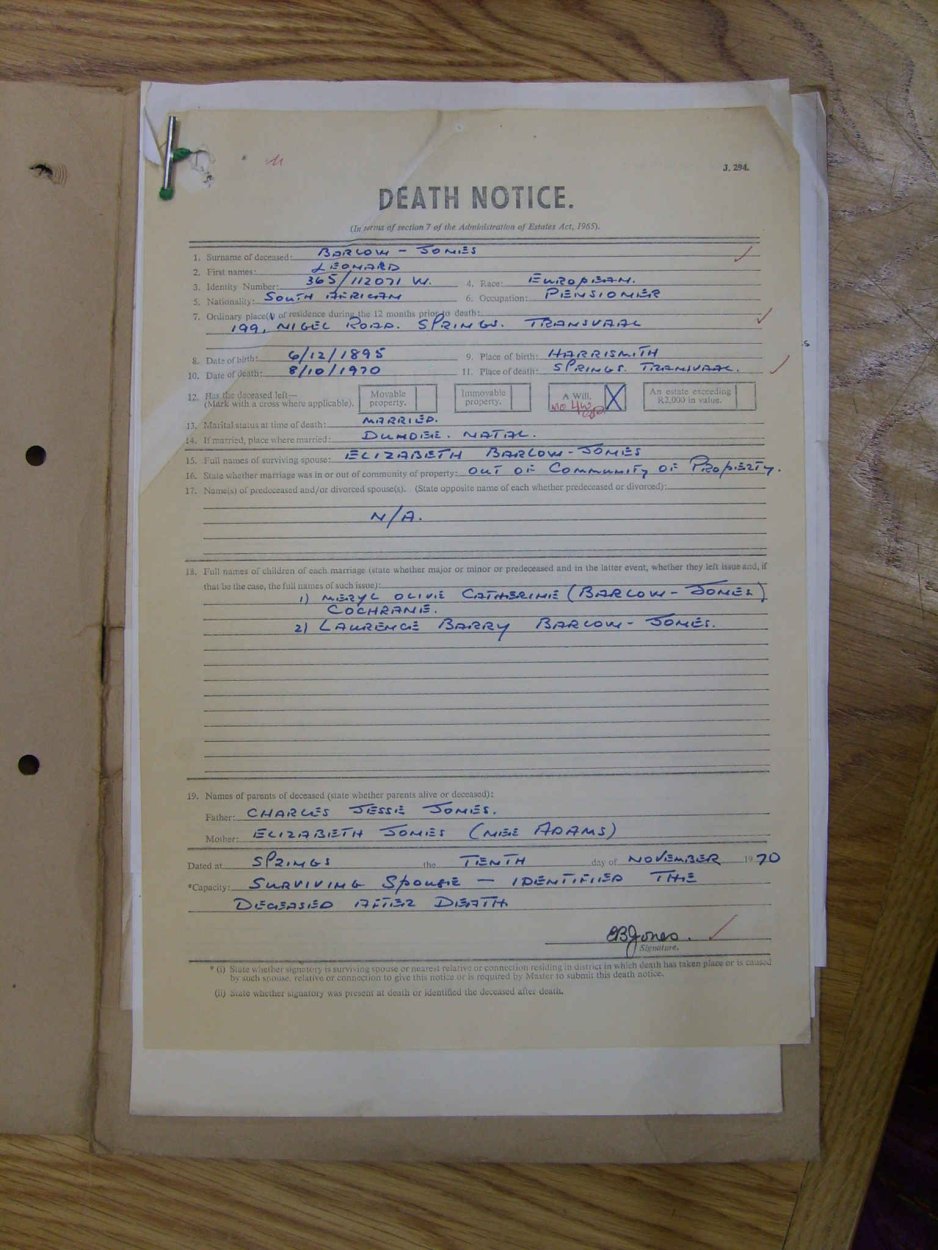 J. 294.
DEATH NOTICE.
(In terms of section 7 of the Administration of Estates Act, 1965).
1. Surname of deceased: BARLOW - JONES
2. First names: LEONARD
3. Identity Number: 365/112071 W. 4. Race: EUROPEAN.
5. Nationality: SOUTH AFRICAN 6. Occupation: PENSIONER
7. Ordinary place(s) of residence during the 12 months prior to death:
199, NIGEL ROAD. SPRINGS. TRANSVAAL
8. Date of birth: 6/12/1895 9. Place of birth: HARRISMITH
10. Date of death: 8/10/1970 11. Place of death: SPRINGS. TRANSVAAL.
12. Has the deceased left— Movable property. Immovable property. A Will. X An estate exceeding R2,000 in value.
(Mark with a cross where applicable).
13. Marital status at time of death: MARRIED.
14. If married, place where married: DUNDEE. NATAL.
15. Full names of surviving spouse: ELIZABETH BARLOW-JONES
16. State whether marriage was in or out of community of property: OUT OF COMMUNITY OF PROPERTY.
17. Name(s) of predeceased and/or divorced spouse(s). (State opposite name of each whether predeceased or divorced):
N/A.
18. Full names of children of each marriage (state whether major or minor or predeceased and in the latter event, whether they left issue and, if
that be the case, the full names of such issue):
1) MERYL OLIVE CATHERINE (BARLOW-JONES)
COCHRANE.
2) LAURENCE BARRY BARLOW-JONES.
19. Names of parents of deceased (state whether parents alive or deceased):
Father: CHARLES JESSE JONES.
Mother: ELIZABETH JONES (NEE ADAMS)
Dated at SPRINGS the TENTH day of NOVEMBER 1970
*Capacity: SURVIVING SPOUSE — IDENTIFIED THE
DECEASED AFTER DEATH
EBJones.
Signature.
* (i) State whether signatory is surviving spouse or nearest relative or connection residing in district in which death has taken place or is caused
by such spouse, relative or connection to give this notice or is required by Master to submit this death notice.
(ii) State whether signatory was present at death or identified the deceased after death.